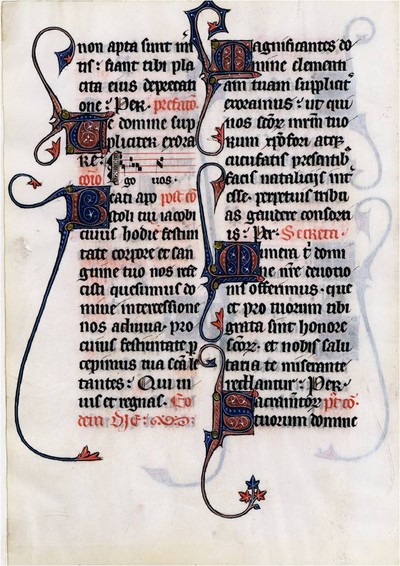 non apta sunt m
tis: fiant tibi pla
cita eius depcati
one. Per. prefatio.
Te domine sup
pliciter exora
re:
go uos.
Beati apo post cō
stoli tui iacobi
cuius hodie festiui
tate corpore et san
guine tuo nos refe
cisti quesumus do
mine intercessione
nos adiuua. pro
cuius festiuitate p
cepimus tua scā le
tantes. Qui ui
uis et regnas. Eo
dem DIE.
Magnificantes do
mine clementi
am tuam supplicit
exoramus. ut qui
nos scōr mrm tuo
rum xpōfori atq
cucufatis presentib
facis nataliciis int
esse. perpetuis tribu
as gaudere consorci
is. Per. Secreta.
Munera t domi
ne nre deuotio
nis offerimus. que
et pro tuorum tibi
grata sint honore
scōr. et nobis salu
taria te miserante
reddantur. Per.
Sacramtor pt cō.
tuorum domine